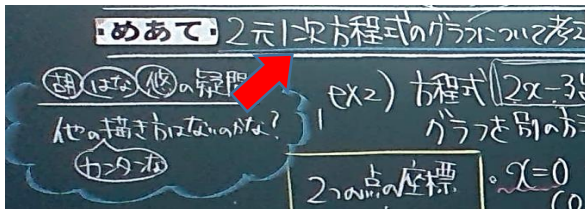 めあて 2元1次方程式のグラフについて考え
胡 はな 悠 の疑問
他の描き方はないのかな?
カンタンな
ex2) 方程式 2x-3
グラフを別の方
2つの点の座標
・x=0